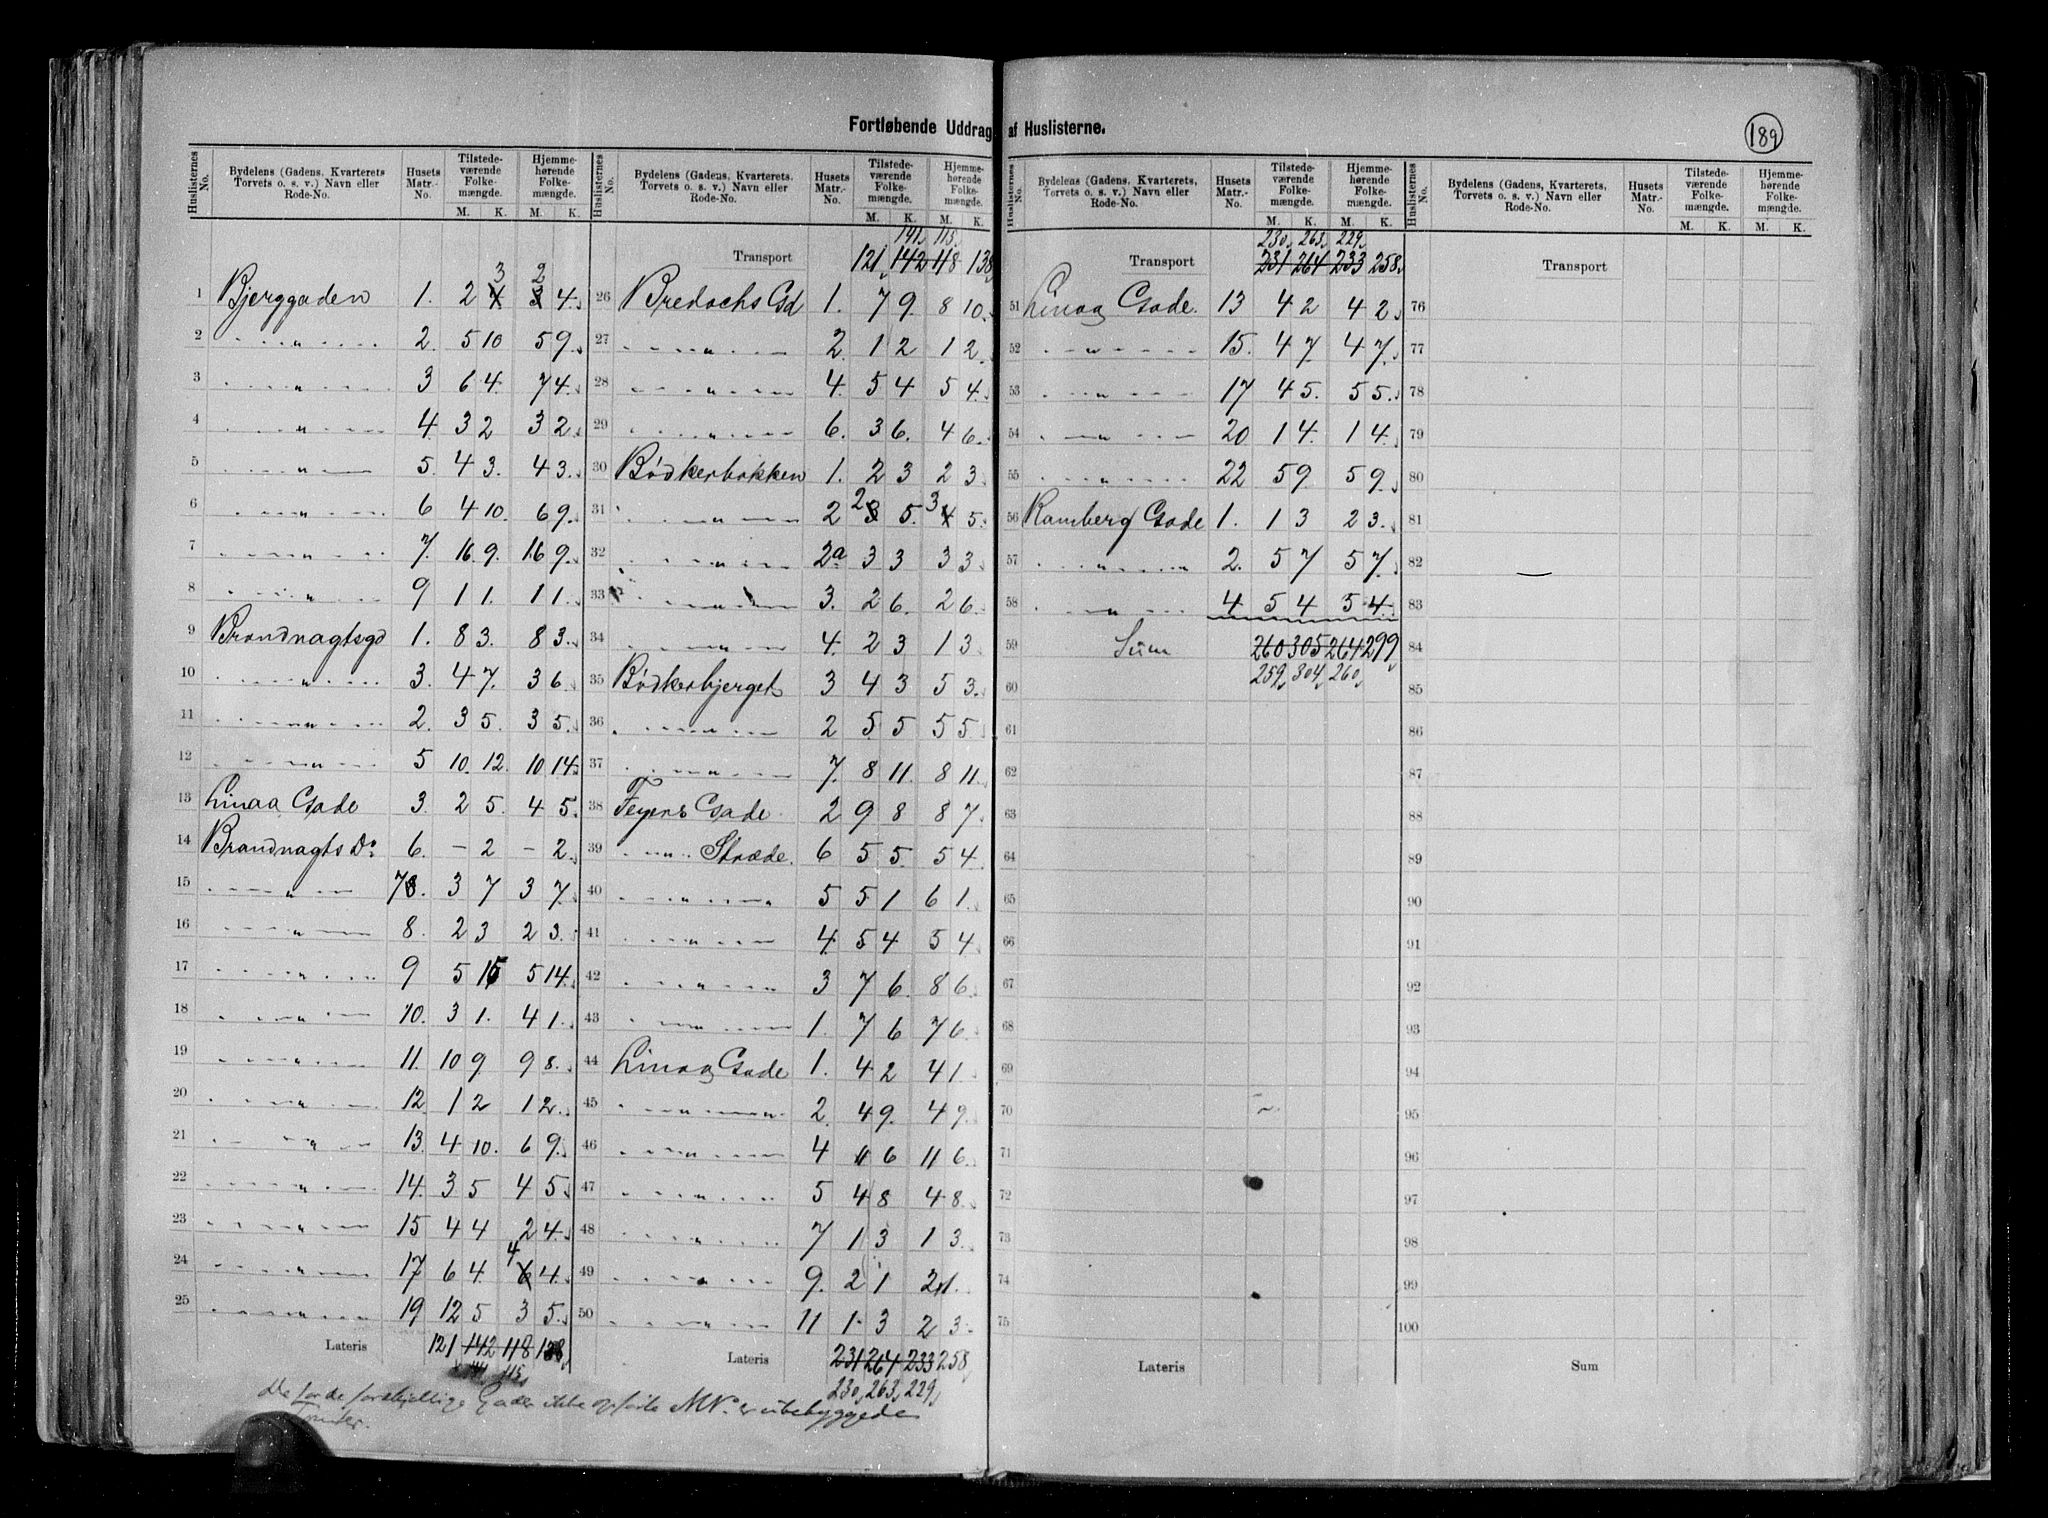 Fortløbende Uddrag af Huslisterne.
189
Huslisternes No. | Bydelens (Gadens, Kvarterets, Torvets o. s. v.) Navn eller Rode-No. | Husets Matr.-No. | Tilstede-værende Folke-mængde. M. K. | Hjemme-hørende Folke-mængde. M. K.
3 2
1 Bjerggaden 1. 2 4 3 4.
2 " 2. 5 10 5 9.
3 " 3 6 4. 7 4.
4 " 4. 3 2 3 2.
5 " 5. 4 3. 4 3.
6 " 6 4 10. 6 9.
7 " 7. 16 9. 16 9.
8 " 9 1 1. 1 1.
9 Brandvagtsgd 1. 8 3. 8 3.
10 " 3. 4 7. 3 6.
11 " 2. 3 5. 3 5.
12 " 5 10. 12. 10 14.
13 Linaa Gade 3. 2 5. 4 5.
14 Brandvagts Do 6. - 2 - 2.
15 " 78. 3 7 3 7.
16 " 8. 2 3 2 3.
17 " 9 5 15 5 14.
18 " 10. 3 1. 4 1.
19 " 11. 10 9 9 8.
20 " 12. 1 2 1 2.
21 " 13. 4 10. 6 9.
22 " 14. 3 5 4 5.
23 " 15 4 4 2 4.
4
24 " 17 6 4. 6 4.
25 " 19 12 5 3 5.
Lateris 121 142 118 138
141. 115.
De for de forskjellige Gader ikke opførte M No. er ubebyggede
Huslisternes No. | Bydelens (Gadens, Kvarterets, Torvets o. s. v.) Navn eller Rode-No. | Husets Matr.-No. | Tilstede-værende Folke-mængde. M. K. | Hjemme-hørende Folke-mængde. M. K.
141. 115.
Transport 121 142 118 138
26 1. 7 9. 8 10.
27 " 2. 1 2 1 2.
28 " 4. 5 4 5 4.
29 " 6. 3 6. 4 6.
30 Bødkerbakken 1. 2 3 2 3.
31 " 2 2 3 5. 3 4 5.
32 " 2a 3 3 3 3.
33 " 3. 2 6. 2 6.
34 " 4. 2 3 1 3.
35 Bødkerbjerget 3 4 3 5 3.
36 " 2 5 5 5 5.
37 " 7. 8 11. 8 11.
38 Feyers Gade 2 9 8 8 7.
39 " Stræde. 6 5 5. 5 4.
40 " 5 5 1 6 1.
41 " 4. 5 4 5 4.
42 " 3 7 6. 8 6.
43 " 1. 7 6 7 6.
44 Linaa Gade 1. 4 2 4 1.
45 " 2. 4 9. 4 9.
46 " 4 11 6 11 6.
47 " 5 4 8 4 8.
48 " 7 1 3 1 3.
49 " 9. 2 1 2 1.
50 " 11 1. 3 2 3.
Lateris 231 264 233 258.
230. 263. 229.
Huslisternes No. | Bydelens (Gadens, Kvarterets, Torvets o. s. v.) Navn eller Rode-No. | Husets Matr.-No. | Tilstede-værende Folke-mængde. M. K. | Hjemme-hørende Folke-mængde. M. K.
230. 263. 229.
Transport 231 264 233 258.
51 Linaa Gade. 13 4 2 4 2.
52 " 15. 4 7. 4 7.
53 " 17 4 5. 5 5.
54 " 20 1 4. 1 4.
55 " 22 5 9. 5 9.
56 Ramberg Gade 1. 1 3 2 3.
57 " 2. 5 7 5 7.
58 " 4 5 4 5 4.
59 Sum 260 305 264 299
259. 304. 260.
60
61
62
63
64
65
66
67
68
69
70
71
72
73
74
75
Lateris
Huslisternes No. | Bydelens (Gadens, Kvarterets, Torvets o. s. v.) Navn eller Rode-No. | Husets Matr.-No. | Tilstede-værende Folke-mængde. M. K. | Hjemme-hørende Folke-mængde. M. K.
Transport
76
77
78
79
80
81
82
83
84
85
86
87
88
89
90
91
92
93
94
95
96
97
98
99
100
Sum